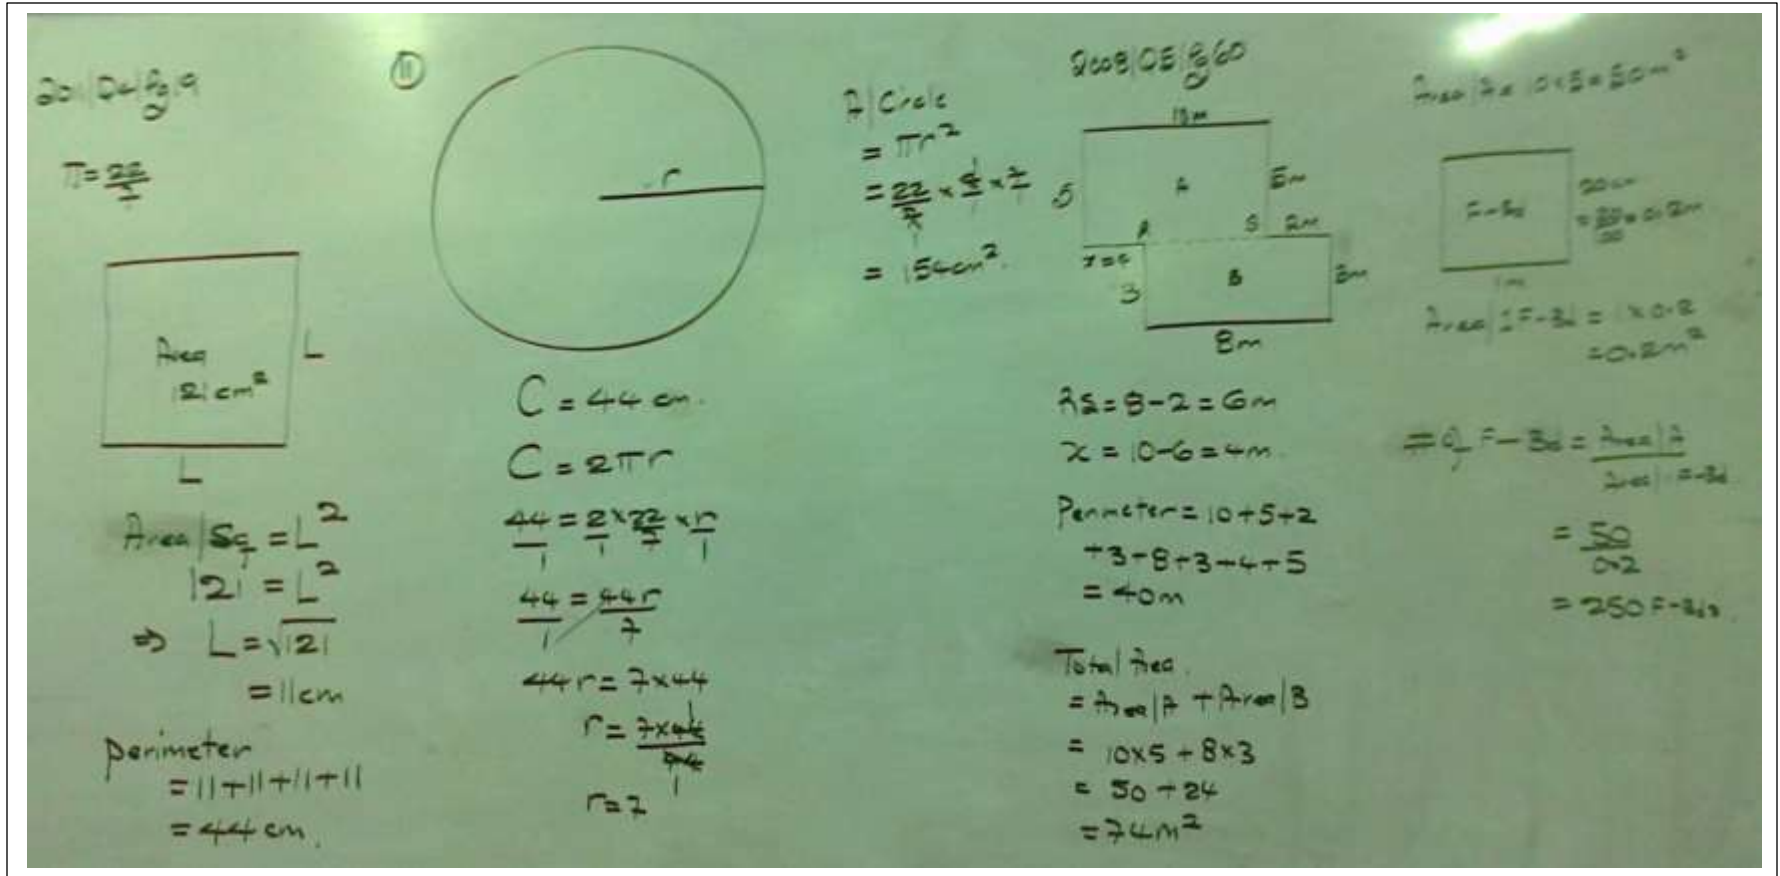 2011/Q4/Pg19
π = 22/7
Area
121 cm²
L
L
Area/Sq = L²
121 = L²
⇒ L = √121
= 11cm
perimeter
= 11+11+11+11
= 44 cm.
(11)
r
C = 44 cm.
C = 2πr
44/1 = 2/1 × 22/7 × r/1
44/1 = 44r/7
44r = 7×44
r = 7×44/44
1
1
r = 7
A/Circle
= πr²
= 22/7 × 7/1 × 7/1
= 154cm².
2008/Q5/Pg60
10m
5
A
5m
R
S
2m
x=4
3
B
3m
8m
RS = 8-2 = 6m
x = 10-6 = 4m.
Perimeter = 10+5+2
+3+8+3+4+5
= 40m
Total Area.
= Area/A + Area/B
= 10×5 + 8×3
= 50 + 24
= 74m²
Area/A = 10×5 = 50m²
F-Bd
20cm
= 20/100 = 0.2m
1m
Area/1F-Bd = 1×0.2
= 0.2m²
F-Bd = Area/A
Area/1F-Bd
= 50/0.2
= 250 F-Bds.